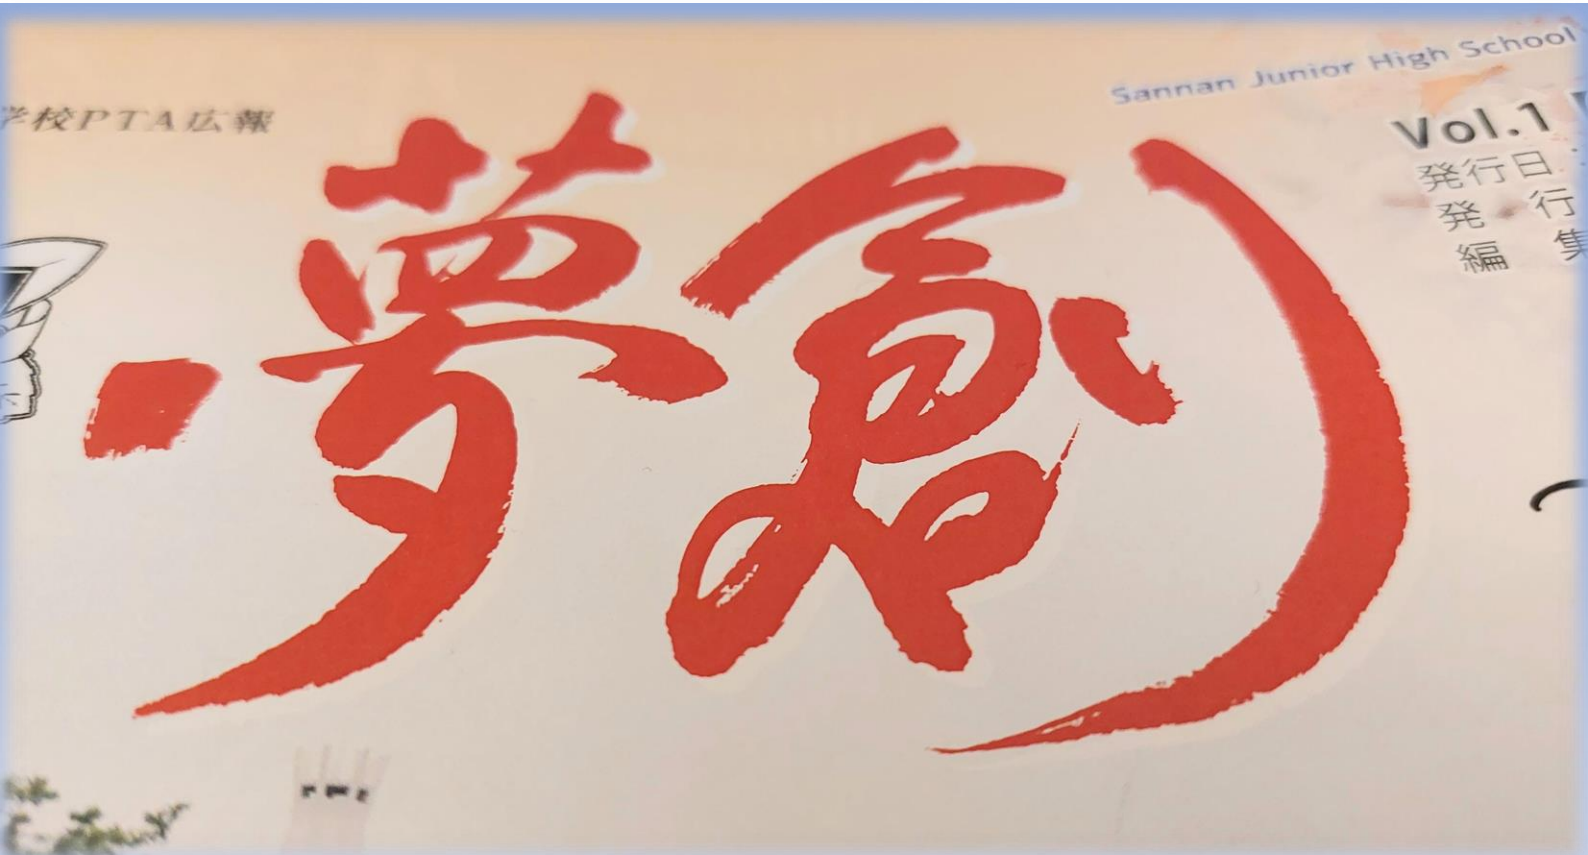 学校PTA広報
・夢創
Sannan Junior High School
Vol.1
発行日
発行
編集